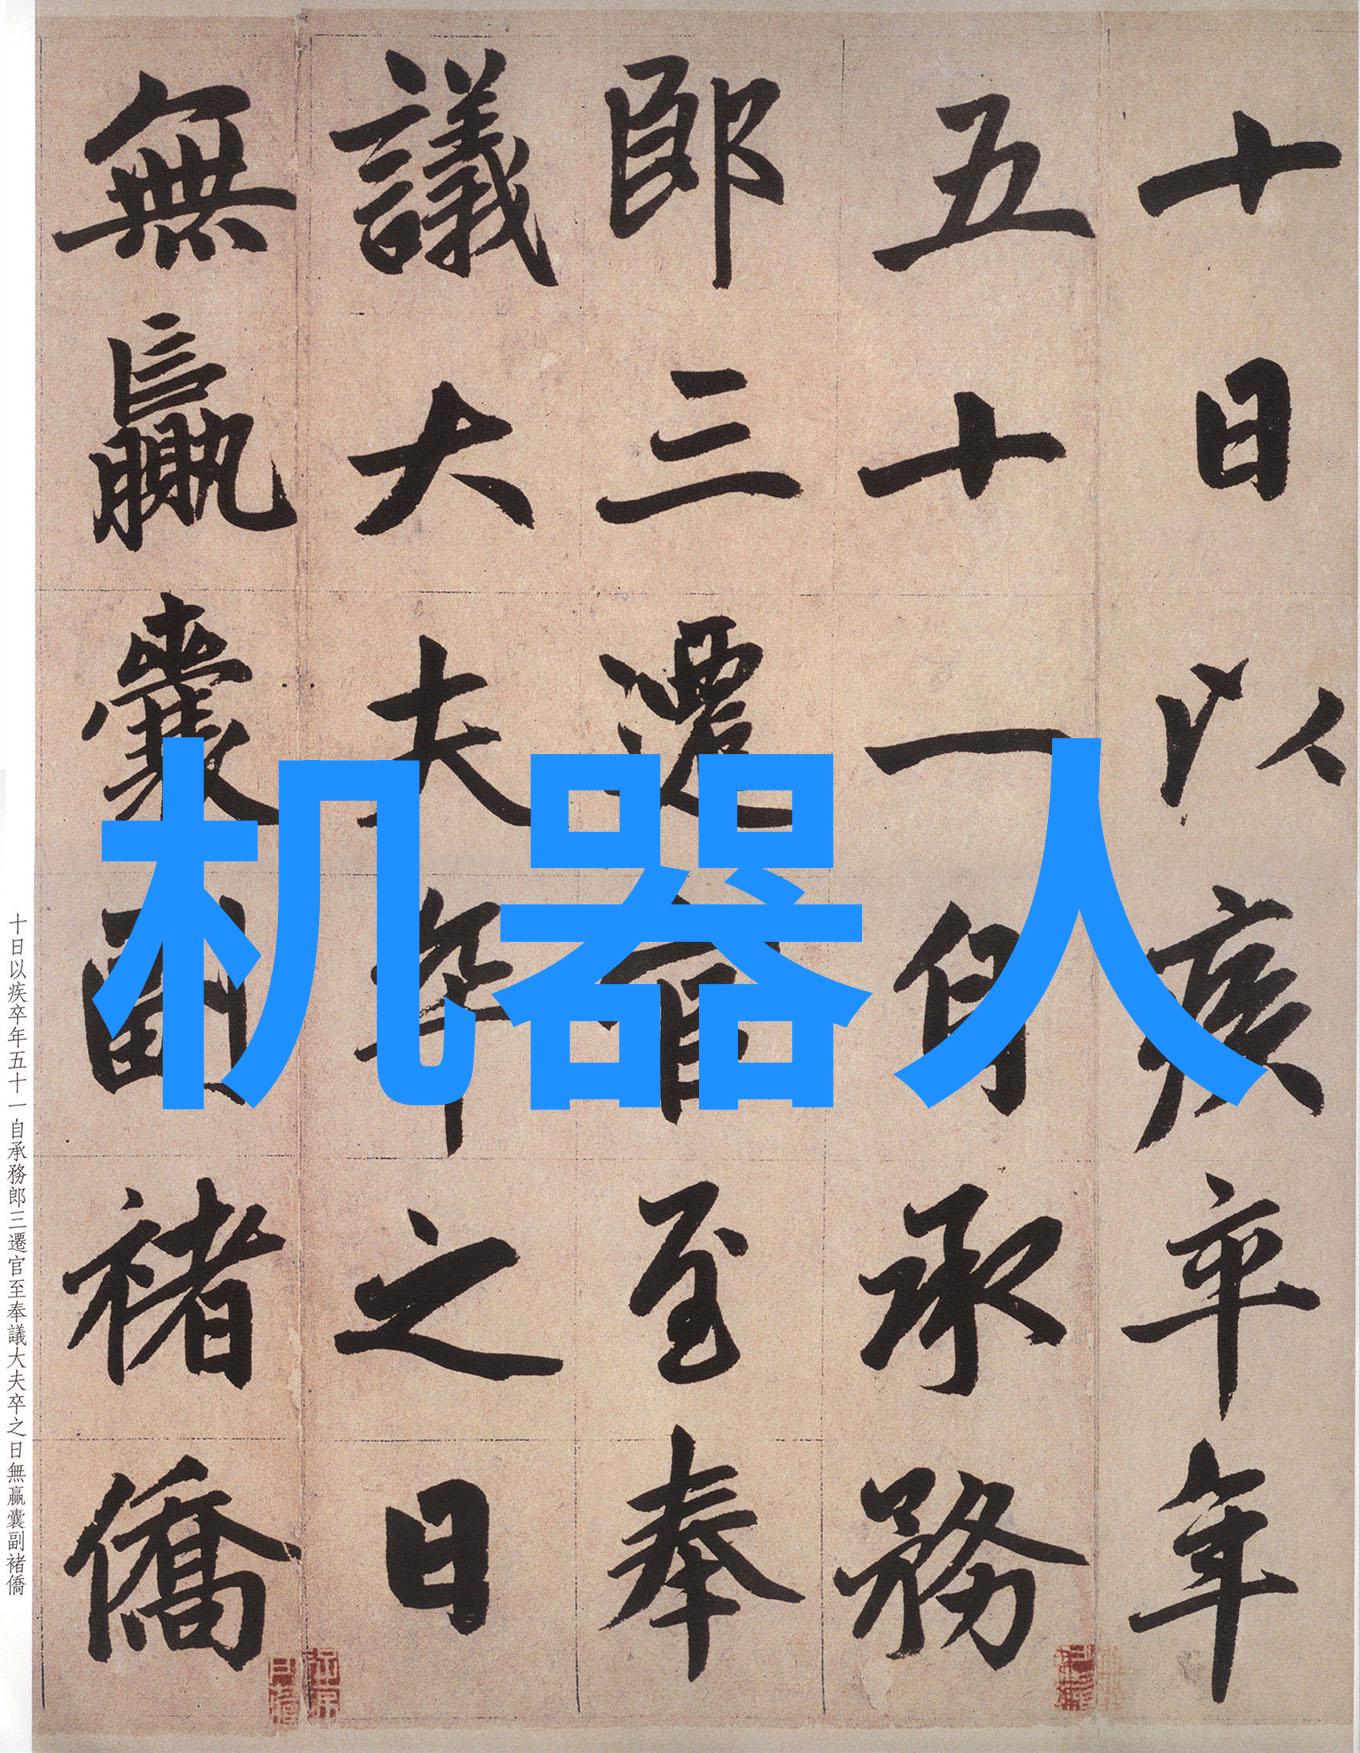 十日以疾卒年
五十一自承務
郎三遷官至奉
議大夫卒之日
無贏囊副褚僑
机器人
十日以疾卒年五十一自承務郎三遷官至奉議大夫卒之日無贏囊副褚僑